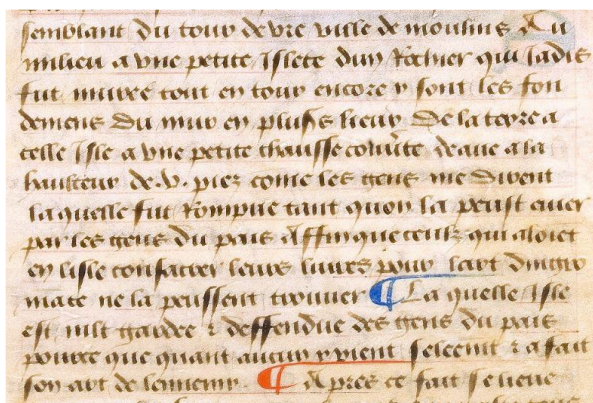 semblant du tour de vre ville de moulins Au
milieu a vne petite Islete dun Rochier qui Jadis
fut muree tout en tour encore y sont les fon
demens du mur en pluss lieux De la terre a
celle Isle a vne petite chaussee couuerte deaue a la
haulteur de .v. piez come les gens me dirent
la quelle fut Rompue tant quon la peust
par les gens du pais Affin que ceulx qui aloiet
en lisle consacrer leurs liures pour lart dnigro
mace ne la peussent trouuer ¶ La quelle Isle
est mlt gardee & deffendue des gens du pais
pource que quant aucun y vient & a fait
son art de lennemy ¶ Apres ce fait se lieue